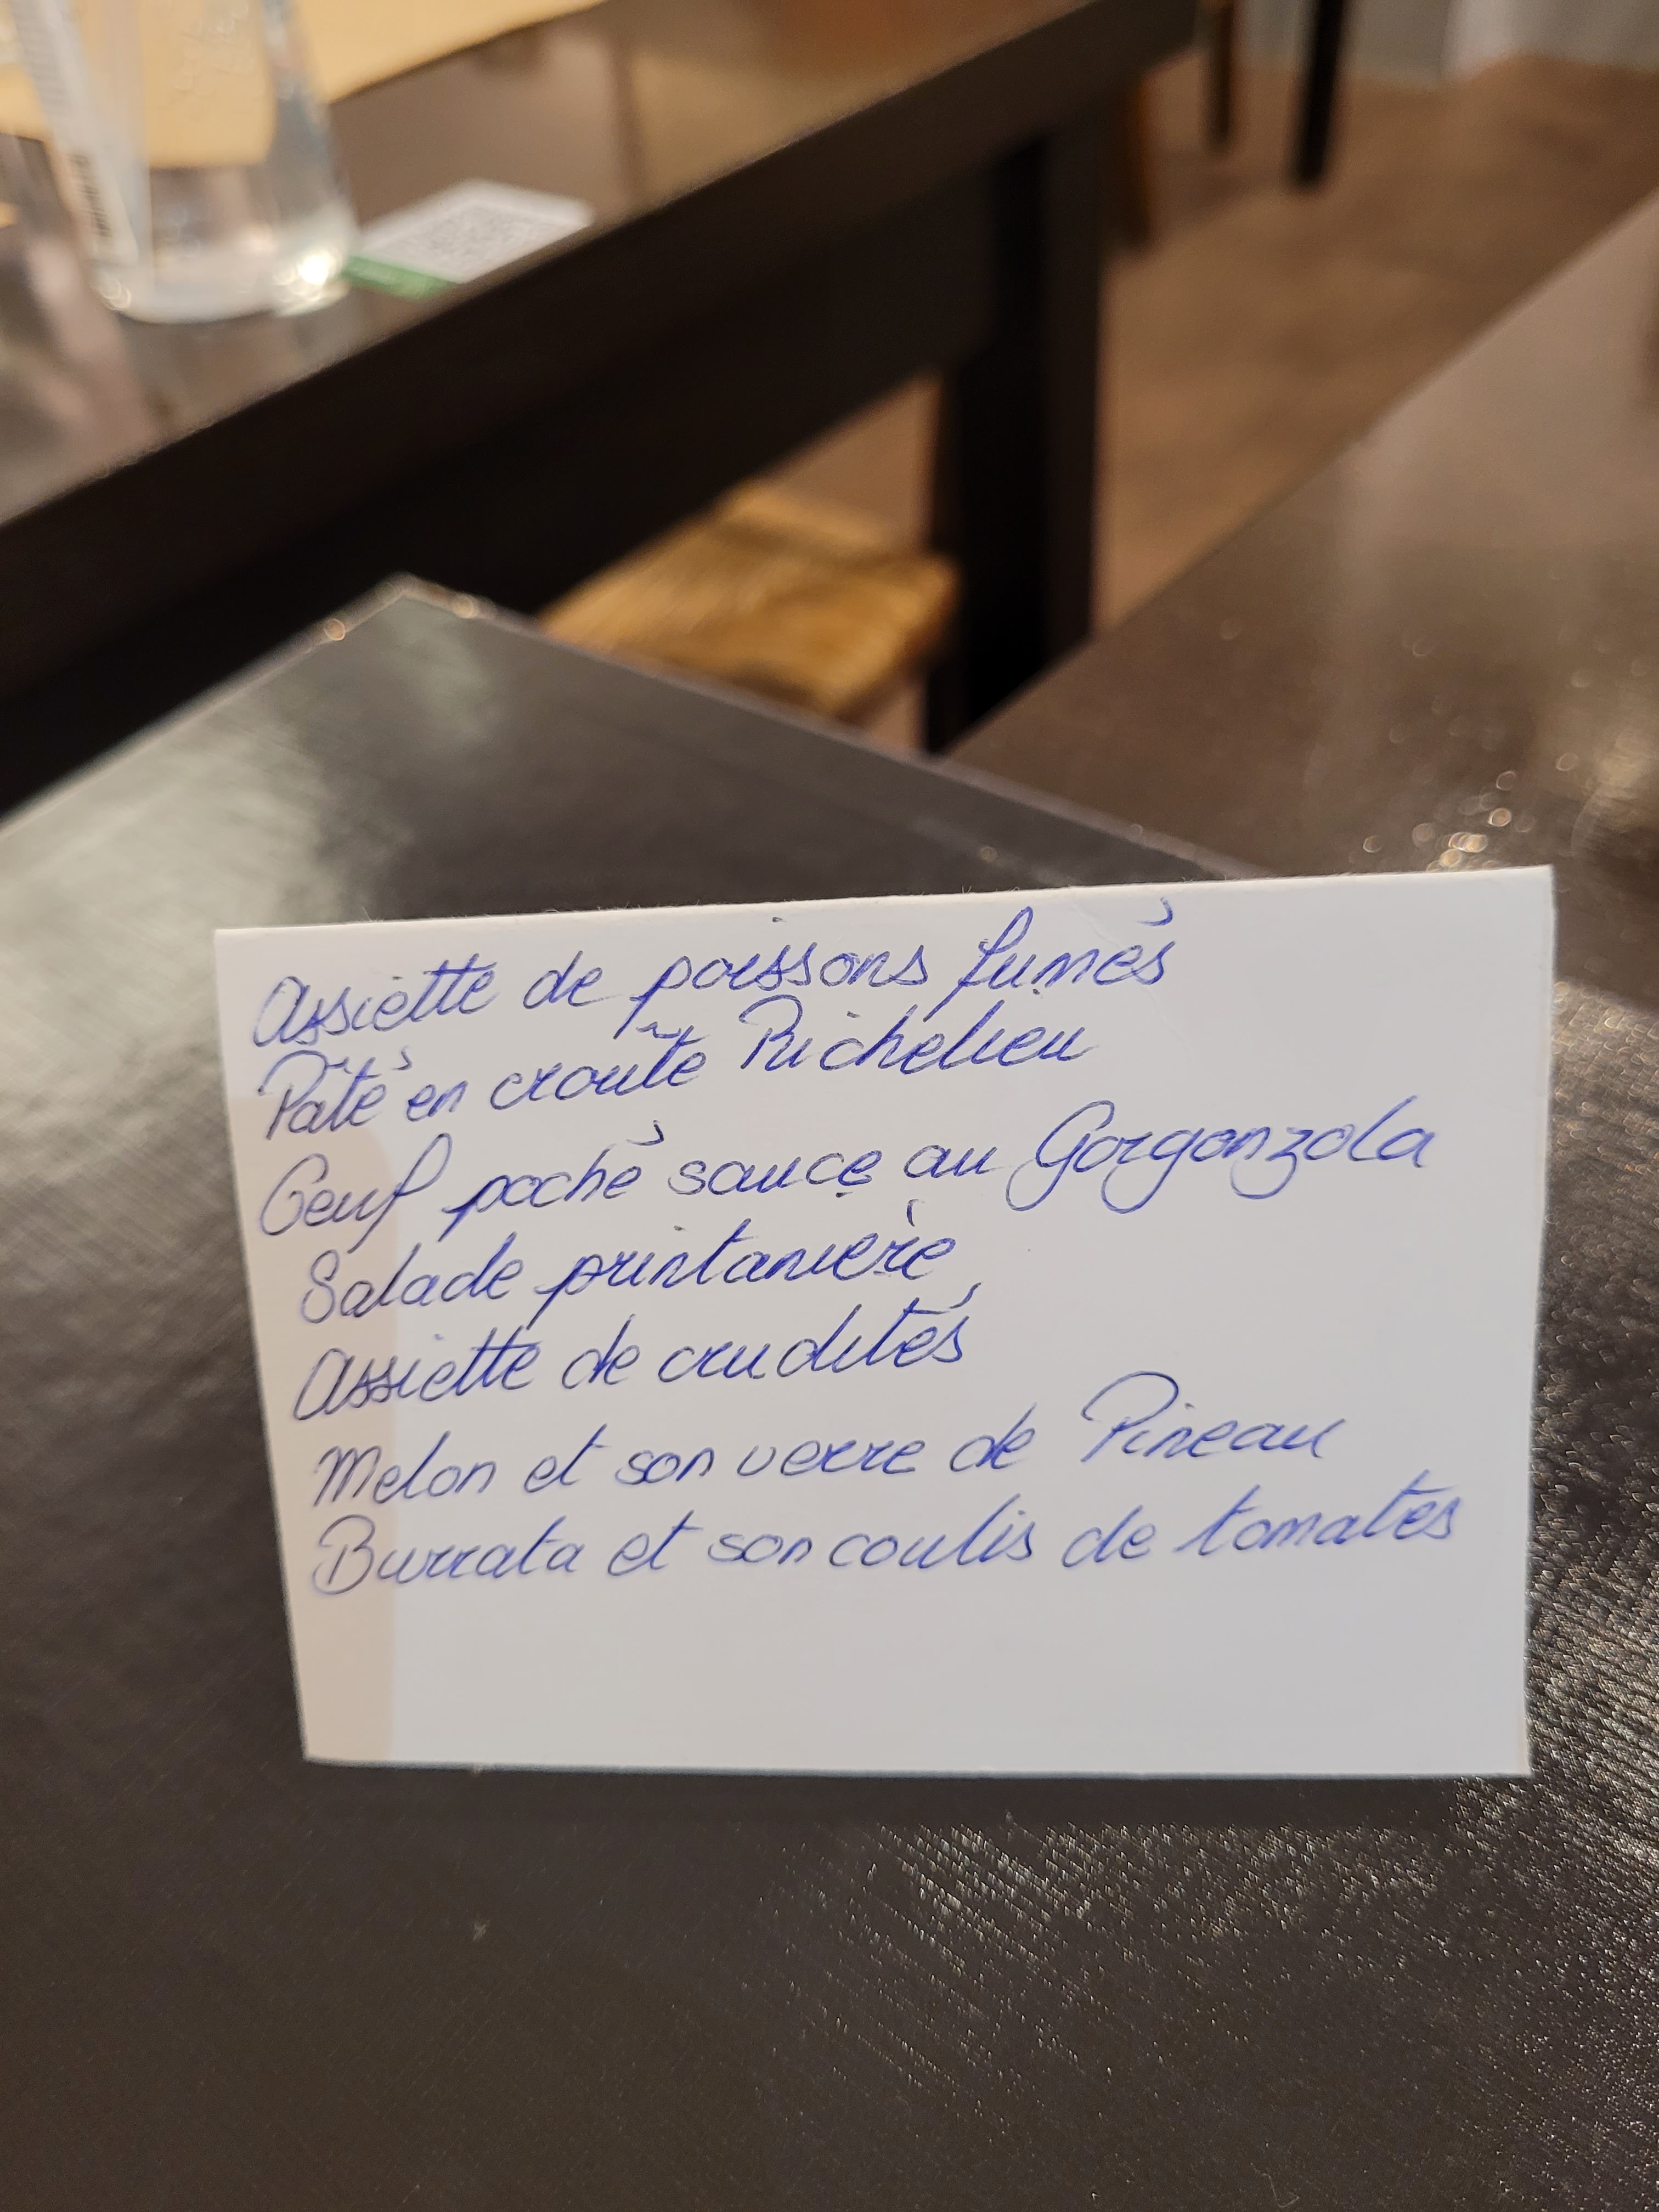 Assiette de poissons fumés
Pâté en croûte Richelieu
Oeuf poché sauce au Gorgonzola
Salade printanière
Assiette de crudités
Melon et son verre de Pineau
Burrata et son coulis de tomates